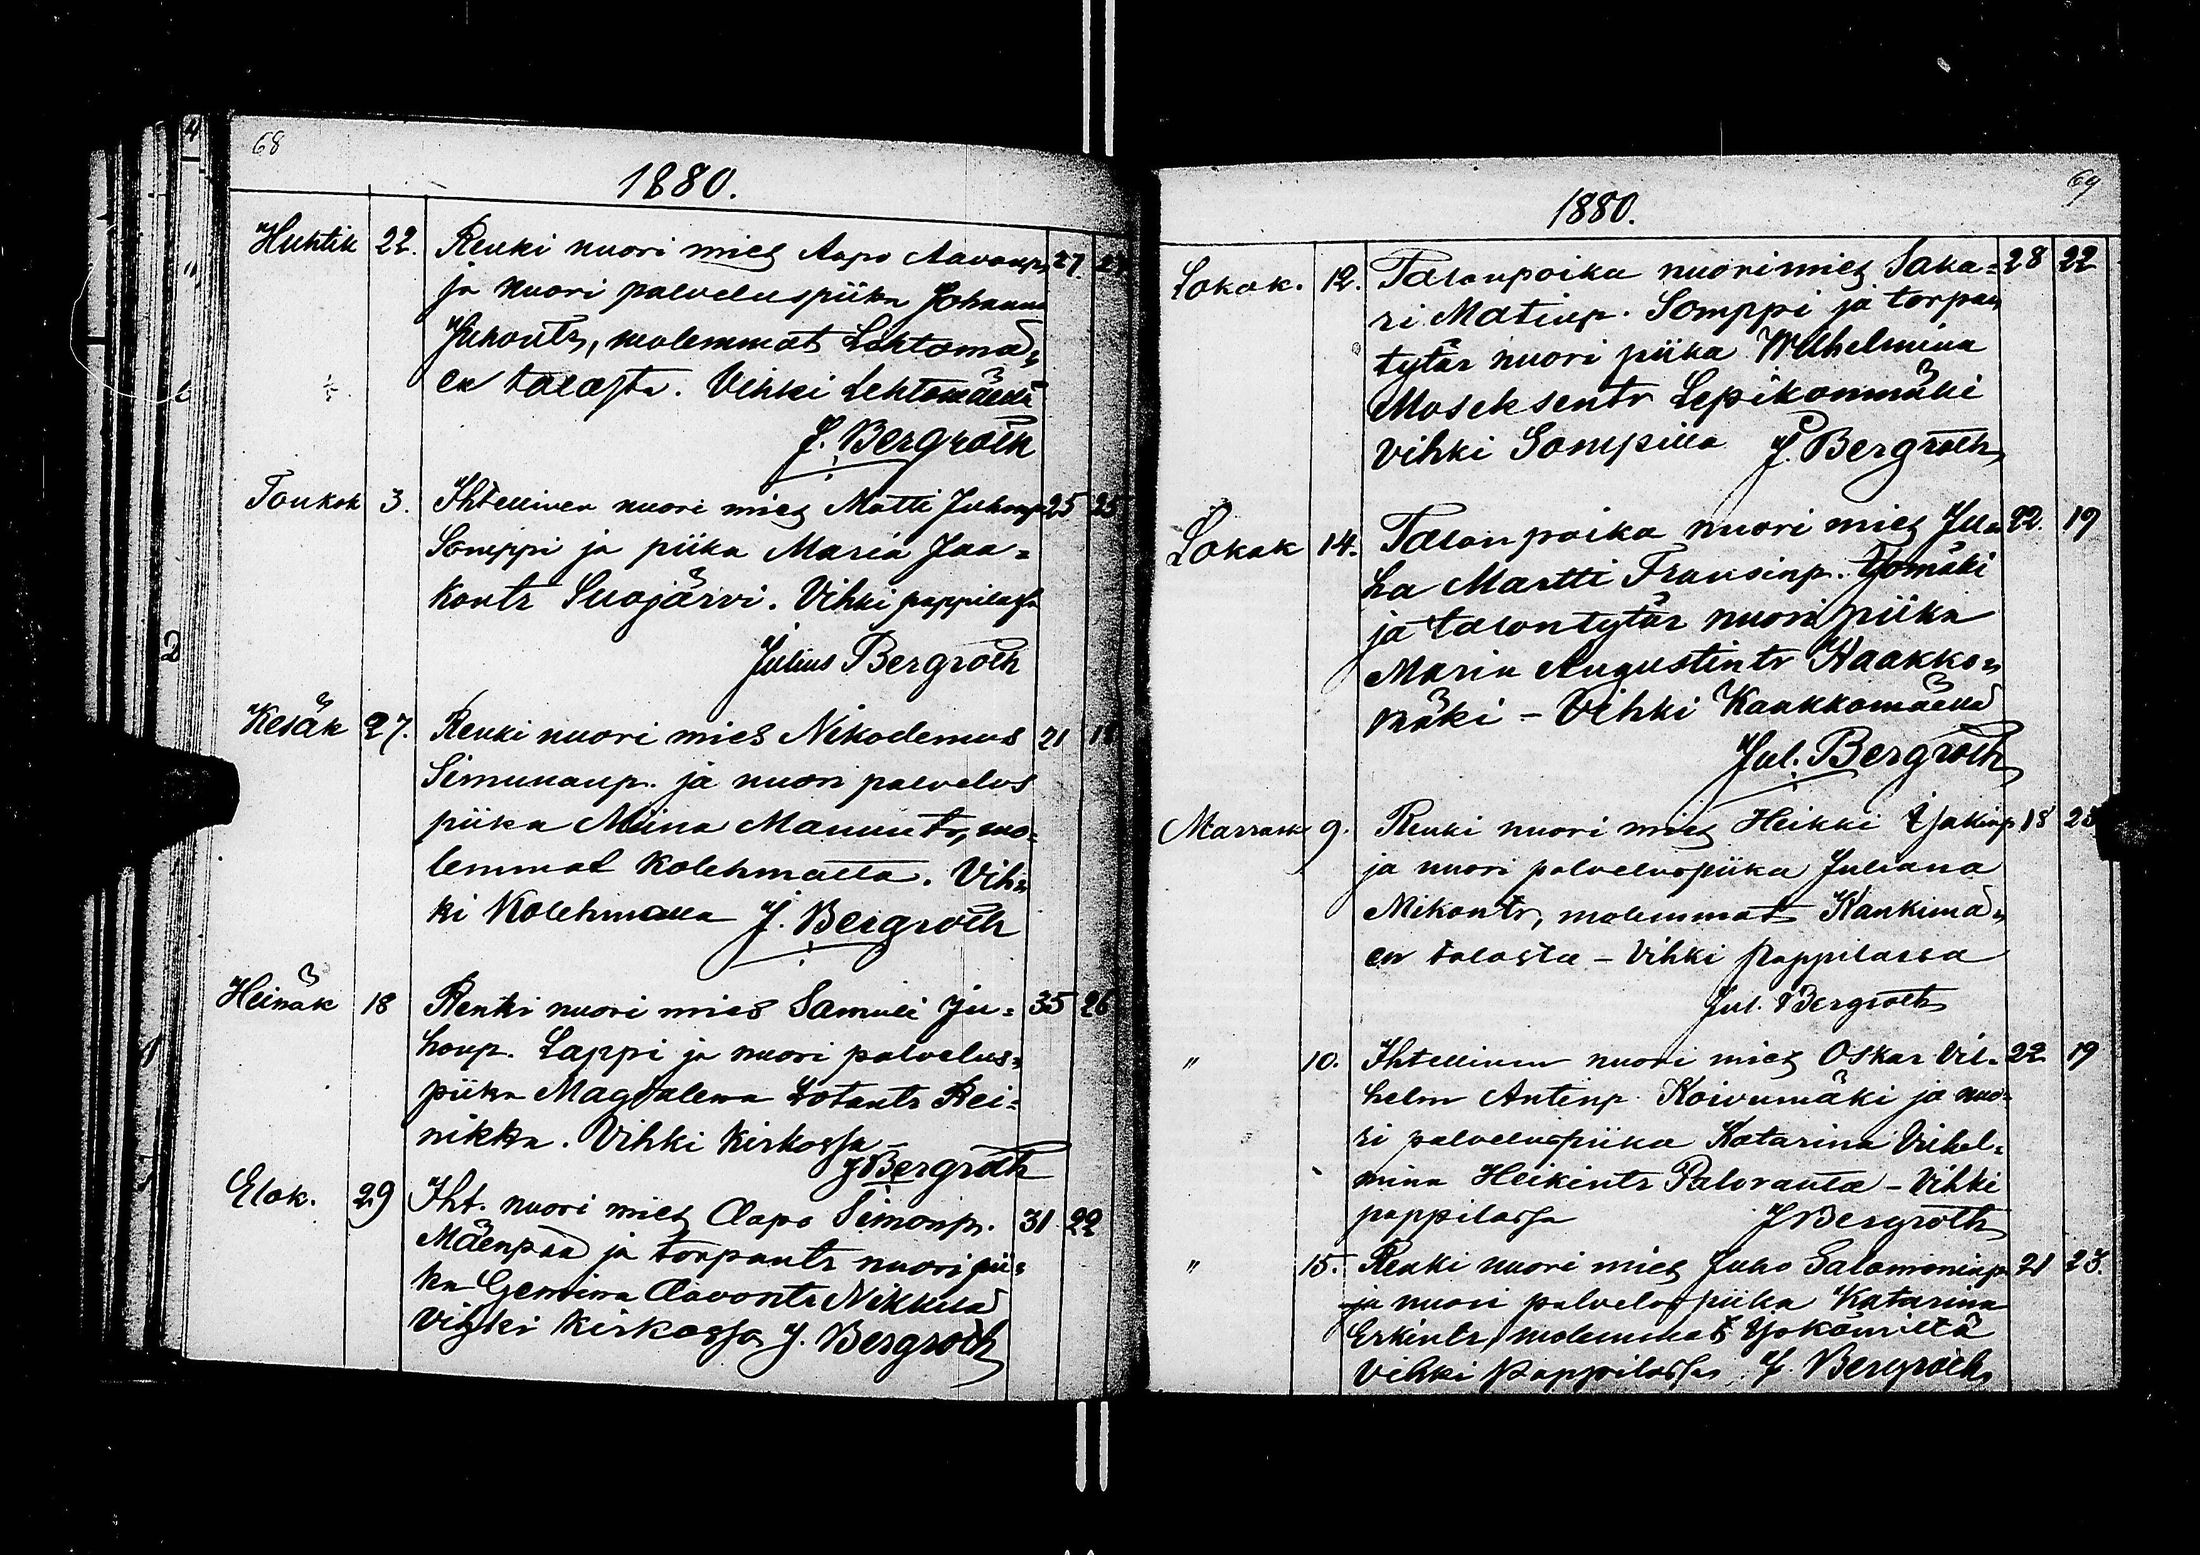 68
1880.
Huhtik 22. Renki nuori mies Aapo Aavonp. 27.
ja nuori palveluspiika Johanna
Juhontr, molemmat Lehtomä=
en talosta. Vihki Lehtomäellä
J. Bergroth
Toukok 3. Ihtellinen nuori mies Matti Juhonp 25 25
Somppi ja piika Maria Jaa=
kontr Suojärvi. Vihki pappilassa
Julius Bergroth
Kesäk 27. Renki nuori mies Nikodemus 21
Simunanp. ja nuori palvelus
piika Miina Mauuntr, mo=
lemmat Kolehmatta. Vih=
ki Kolehmalla J. Bergroth
Heinäk 18 Renki nuori mies Samuli Ju= 35 26
honp. Lappi ja nuori palvelus=
piika Magdalena Lotantr Rei=
nikka. Vihki Kirkossa
J Bergroth
Elok. 29 Iht. nuori mies Aapo Simonp. 31 22
Mäenpää ja torpantr nuori pii=
ka Gemina Aavontr Nikkilä
Vihki Kirkossa J. Bergroth
69
1880.
Lokak. 12. Talonpoika nuori mies Saka= 28 22
ri Matinp. Somppi ja torpan
tytär nuori piika Wilhelmina
Moseksentr Lepikonmäki
Vihki Sompilla J. Bergroth
Lokak 14. Talonpoika nuori mies Ju= 22. 19
ha Martti Fransinp. Yömäki
ja talontytär nuori piika
Maria Augustintr Kaakko=
mäki - Vihki Kaakkomäellä
Jul. Bergroth
Marrask 9. Renki nuori mies Heikki Isakinp 18 23
ja nuori palveluspiika Juliana
Mikontr, molemmat Kankimä=
en talosta - Vihki Pappilassa
Jul. Bergroth
" 10. Ihtellinen nuori mies Oskar Vil= 22 19
helm Antinp Koivumäki ja nuo=
ri palveluspiika Katarina Vilhel=
mina Heikintr Paloranta - Vihki
pappilassa J Bergroth
" 15. Renki nuori mies Juho Salomoninp 21 23.
ja nuori palveluspiika Katarina
Erkintr, molemmat
Vihki Pappilassa J. Bergroth